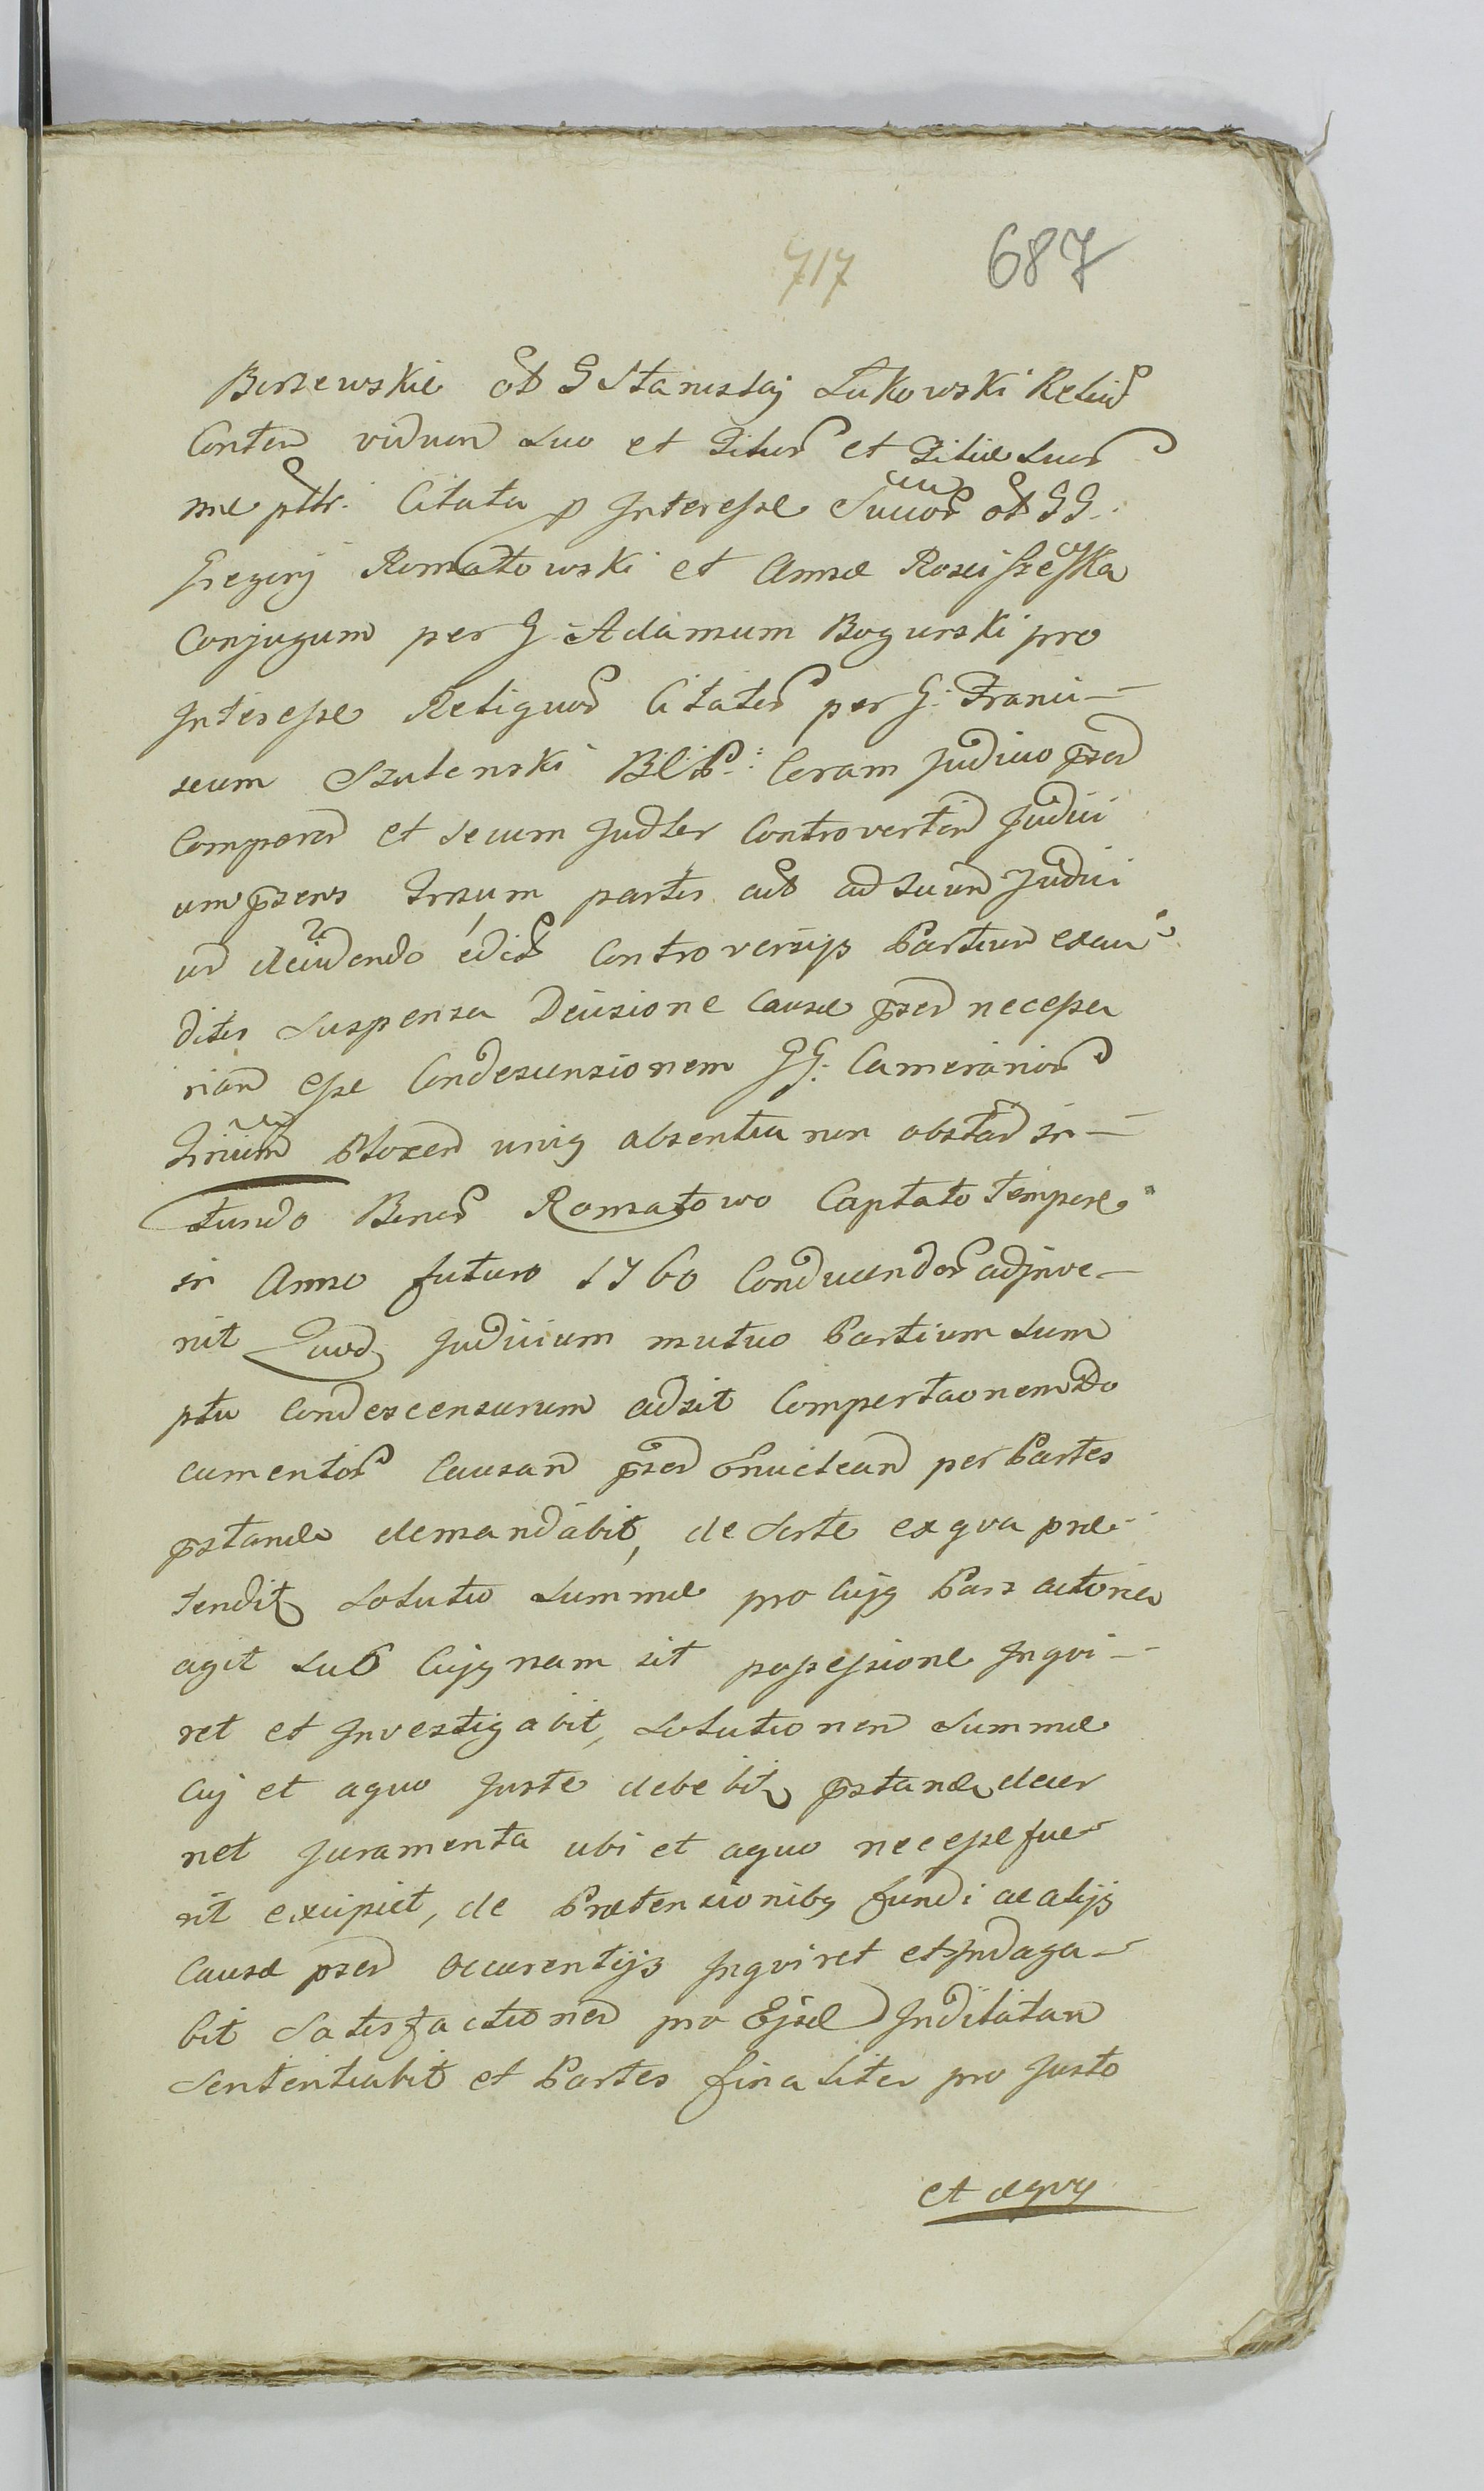 717 687
Borzewskie ol G Stanislaj Łukowski Relict
Conten viduam suo et Filior et Filiæ suor
me pttr. Citata p Interesse Suuor ol GG.
Gregorij Romatowski et Annæ Rosciszewska
Conjugum per G. Adamum Bogurski pro
Interesse Reliquor Citator per G. Franci-
scum Szulenski BCP: Coram Judicio præd
Comparen et secum Judler Controverten Judici
um præns Trsum partis act ad suum Judici
um decidendo edict Controversijs Partium exau
ditis suspensa Decisione Causæ præd necessa
riam esse Condescensionem GG. Camerarior
Trium Plocen unig absentia non obstan in-
fundo Bonor Romatowo Captato tempore
in Anno futuro 1760 Conducendor adinve-
nit Quod Judicium mutuo Partium sum
ptu Condescensurum adsit Comportaonem Do
cumentor Causam præd enuclean per Partes
pstandã demandabit, de sorte ex qva præ-
tendit solutio summæ pro Cujg Pars actorea
agit sub Cujgnam sit possessione Inqvi-
ret et Investigabit, solutionem summæ
Cuj et aquo Juste debebit pstandã decer
net Juramenta ubi et aquo necesse fue
rit excipiet, de Prætensionibg fundi ac alijs
Causæ præd occurentijs Inqviret et Indaga-
bit Satisfactionem pro Ejsd Inditatam
Sententiabit et Partes finaliter pro Justo
et æqvo